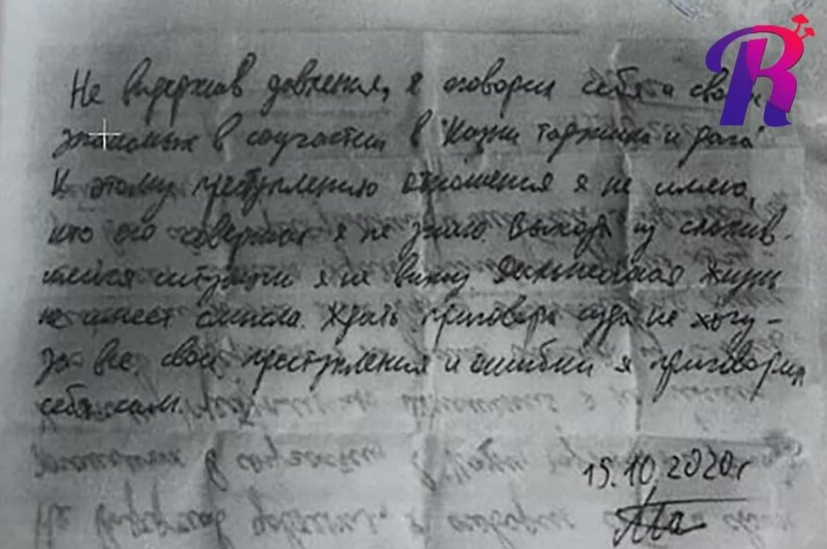 R
Не выдержав давления, я оговорил себя и своих
знакомых в соучастии в "Казни таджика и дага"
К этому преступлению отношения я не имею,
кто его совершал я не знаю. Выхода из сложив-
шейся ситуации я не вижу Дальнейшая жизнь
не имеет смысла. Ждать приговора суда не хочу -
за все свои преступления и ошибки я приговорил
себя сам.
15.10.2020г